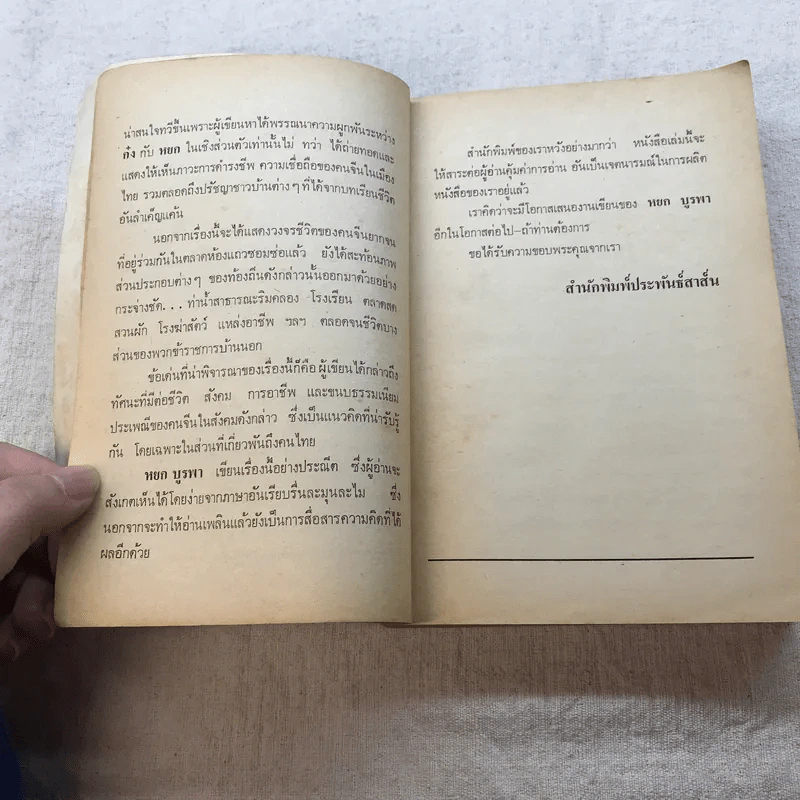 น่าสนใจทวีขึ้นเพราะผู้เขียนหาได้พรรณนาความผูกพันระหว่าง
ก๋ง กับ หยก ในเชิงส่วนตัวเท่านั้นไม่ ทว่า ได้ถ่ายทอดและ
แสดงให้เห็นภาวะการดำรงชีพ ความเชื่อถือของคนจีนในเมือง
ไทย รวมตลอดถึงปรัชญาชาวบ้านต่างๆ ที่ได้จากบทเรียนชีวิต
อันลำเค็ญแค้น
นอกจากเรื่องนี้จะได้แสดงวงจรชีวิตของคนจีนยากจน
ที่อยู่ร่วมกันในตลาดห้องแถวซอมซ่อแล้ว ยังได้สะท้อนภาพ
ส่วนประกอบต่างๆ ของท้องถิ่นดังกล่าวนั้นออกมาด้วยอย่าง
กระจ่างชัด... ท่าน้ำสาธารณะริมคลอง โรงเรียน ตลาดสด
สวนผัก โรงฆ่าสัตว์ แหล่งอาชีพ ฯลฯ ตลอดจนชีวิตบาง
ส่วนของพวกข้าราชการบ้านนอก
ข้อเด่นที่น่าพิจารณาของเรื่องนี้ก็คือ ผู้เขียนได้กล่าวถึง
ทัศนะที่มีต่อชีวิต สังคม การอาชีพ และขนบธรรมเนียม
ประเพณีของคนจีนในสังคมดังกล่าว ซึ่งเป็นแนวคิดที่น่ารับรู้
กัน โดยเฉพาะในส่วนที่เกี่ยวพันถึงคนไทย
หยก บูรพา เขียนเรื่องนี้อย่างประณีต ซึ่งผู้อ่านจะ
สังเกตเห็นได้โดยง่ายจากภาษาอันเรียบรื่นละมุนละไม ซึ่ง
นอกจากจะทำให้อ่านเพลินแล้วยังเป็นการสื่อสารความคิดที่ได้
ผลอีกด้วย
สำนักพิมพ์ของเราหวังอย่างมากว่า หนังสือเล่มนี้จะ
ให้สาระต่อผู้อ่านคุ้มค่าการอ่าน อันเป็นเจตนารมณ์ในการผลิต
หนังสือของเราอยู่แล้ว
เราคิดว่าจะมีโอกาสเสนองานเขียนของ หยก บูรพา
อีกในโอกาสต่อไป—ถ้าท่านต้องการ
ขอได้รับความขอบพระคุณจากเรา
สำนักพิมพ์ประพันธ์สาส์น